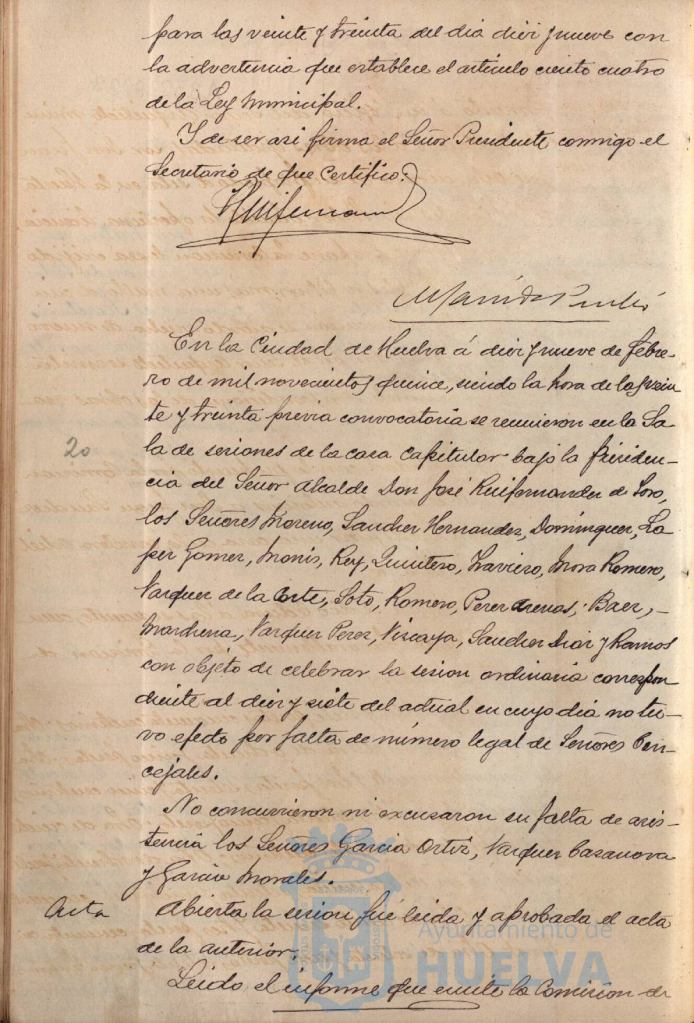 para las veinte y treinta del dia diez y nueve con
la advertencia que establece el articulo ciento cuatro
de la Ley Municipal.
Y de ser asi firma el Señor Presidente conmigo el
Secretario de que Certifico.
En la Ciudad de Huelva á diez y nueve de febre-
ro de mil novecientos quince, siendo la hora de las vein
te y treinta previa convocatoria se reunieron en la Sa-
20
la de sesiones de la casa Capitular bajo la Presiden-
cia del Señor Alcalde Don José Ruifernandez de Soto,
los Señores Moreno, Sanchez Hernandez, Dominguez, Lo
pez Gomez, Monis, Rey, Quintero, Mora Romero,
Vazquez de la Corte, Soto, Romero, Perez Arenas, Baez,
Marchena, Vazquez Perez, Vizcaya, Sanchez Diaz y Ramos
con objeto de celebrar la sesion ordinaria correspon
diente al diez y siete del actual en cuyo dia no tu-
vo efecto por falta de número legal de Señores Con-
cejales.
No concurrieron ni excusaron su falta de asis-
tencia los Señores Garcia Ortiz, Vazquez Casanova
y Garcia Morales.
Acta
Abierta la sesion fué leida y aprobada el acta
de la anterior.
Leido el informe que emite la Comision de
Ayuntamiento de
HUELVA